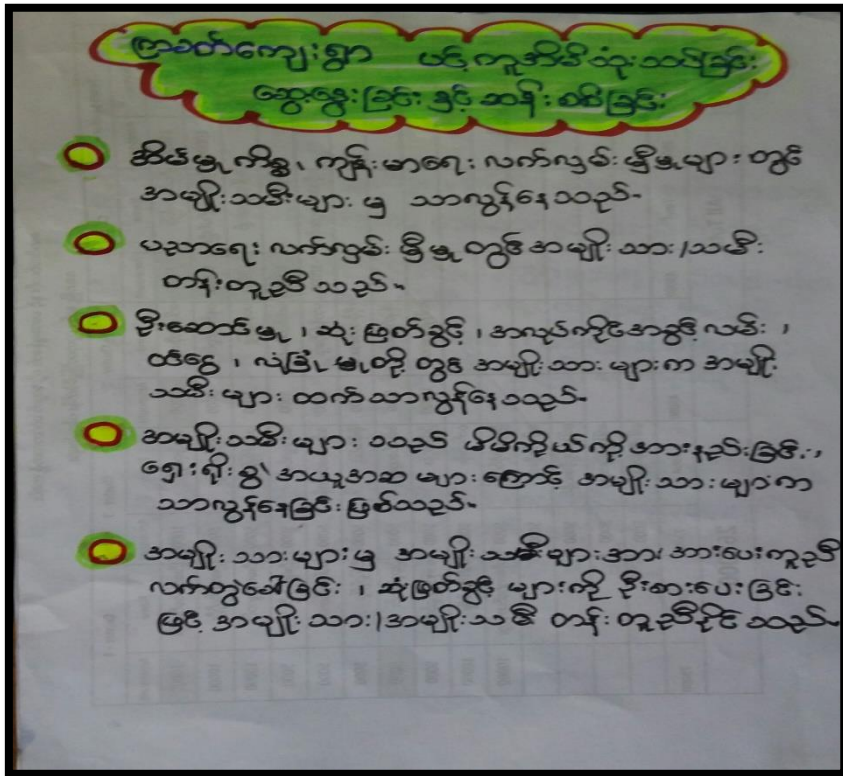 ကြခတ်ကျေးရွာ ပင့်ကူအိမ်သုံးသပ်ခြင်း
ဆွေးနွေးခြင်း နှင့် ဆန်းစစ်ခြင်း
အိမ်မှုကိစ္စ၊ ကျန်းမာရေး လက်လှမ်းမှီမှုများ တွင်
အမျိုးသမီးများ မှ သာလွန်နေသည်-
ပညာရေး လက်လှမ်းမှီမှု တွင် အမျိုးသား/သမီး
တန်းတူညီသည်-
ဦးဆောင်မှု၊ ဆုံးဖြတ်ခွင့်၊ အလုပ်ကိုင်အခွင့်လမ်း၊
ဝင်ငွေ၊ လုံခြုံမှုတို့ တွင် အမျိုးသားများက အမျိုး
သမီးများ ထက်သာလွန်နေသည်-
အမျိုးသမီးများ သည် မိမိကိုယ်ကိုအားနည်းခြင်း၊
ရှေးရိုးစွဲ အယူအဆများကြောင့် အမျိုးသားများက
သာလွန်နေခြင်းဖြစ်သည်-
အမျိုးသားများမှ အမျိုးသမီးများအား အားပေးကူညီ
လက်တွဲခေါ်ခြင်း၊ ဆုံးဖြတ်ခွင့်များကို ဦးစားပေးခြင်း
ဖြင့် အမျိုးသား/အမျိုးသမီး တန်းတူညီနိုင်သည်-